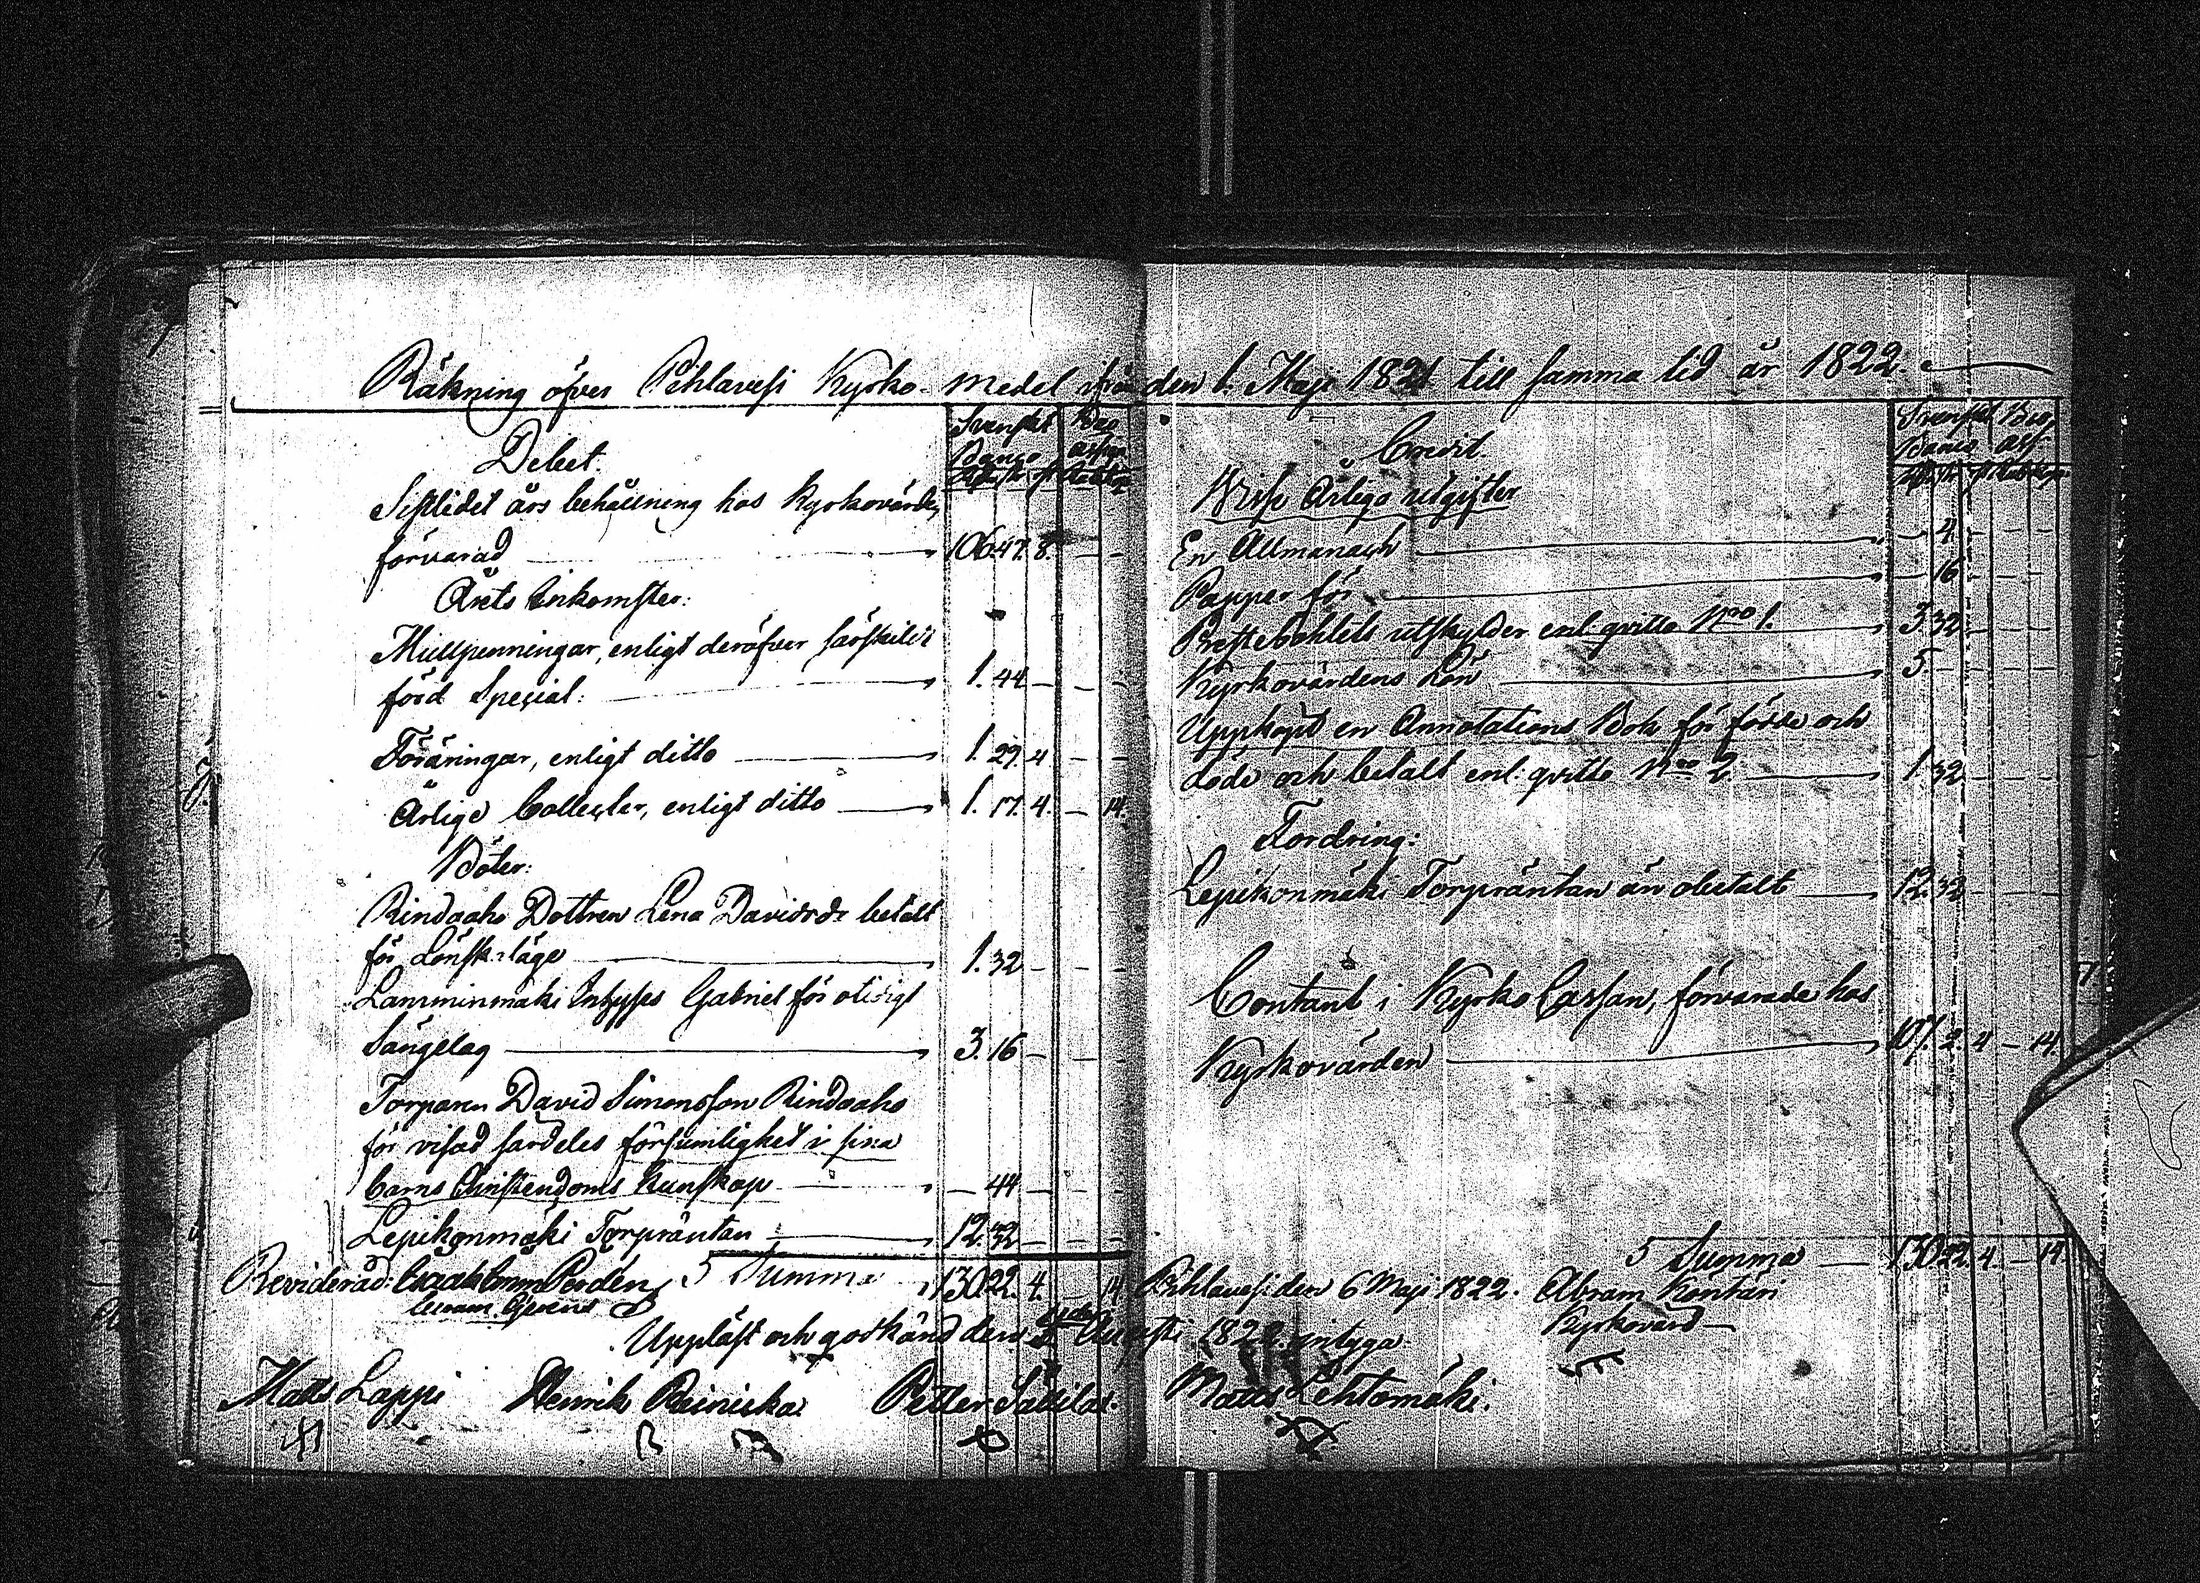 Räkning öfver Pihlavesi Kyrko-medel ifrån den 1. Maji 1821 till samma tid år 1822.
Debet.
Svenskt Banco
Bco assign
Sistlidet års behållning hos Kyrkovärden
förvarad 106. 47. 8. — —
Årets Inkomster:
Mullpenningar, enligt deröfver särskildt
förd Special: 1. 44. — — —
Föräringar, enligt ditto 1. 29. 4 — —
Årlige Collecter, enligt ditto 1. 17. 4. — 14.
Böter:
Rindaaho Dottren Lena Davidsdr betalt
för Lönskaläge 1. 32 — — —
Lamminmäki Inhyses Gabriel för otidigt
Sängelag 3. 16 — — —
Torparen David Simonsson Rindaaho
för visad särdeles försumlighet i sina
barns Christendoms kunskap — 44 — — —
Lepikonmäki Torpräntan 12. 32 — — —
Summa 130. 22. 4. — 14
Credit.
Svenskt Banco
Bco ass
Årliga utgifter
En Allmanach — 4. — — —
Papper för — 16 — — —
Prestebohlets utskylder enl. qvitto Nro 1. 3. 32 — — —
Kyrkovärdens Lön 5. — — —
Uppköpt en Annotations Bok för födde och
döde och betalt enl: qvitto Nro 2 1. 32 — — —
Fordring:
Lepikonmäki Torpräntan än obetalt 12. 32 — — —
Contant i Kyrko Cassan, förvarade hos
Kyrkovärden 107. 2. 4 — 14.
Summa 130. 22. 4. — 14
Reviderad:
Pihlavesi den 6 Maji 1822. Abram Kontäri
Kyrkovärd
Uppläst och godkänd den Augusti 1822. intyga
Matts Lappi Henrik Reiniska Petter Sällilä. Matts Lehtomäki.